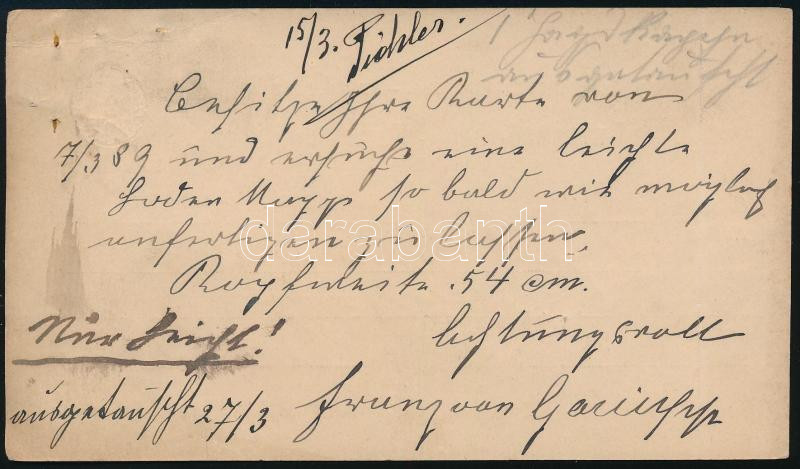 15/3. Pichler.
1 Jagdkappen
ausgetauscht
Besitze Ihre Karte von
7/3 89 und ersuche eine leichte
Loden Kappe so bald wie möglich
anfertigen zu lassen.
Kopfweite 54 cm.
Nur leicht!
Achtungsvoll
ausgetauscht 27/3
Franz von
darabanth.com